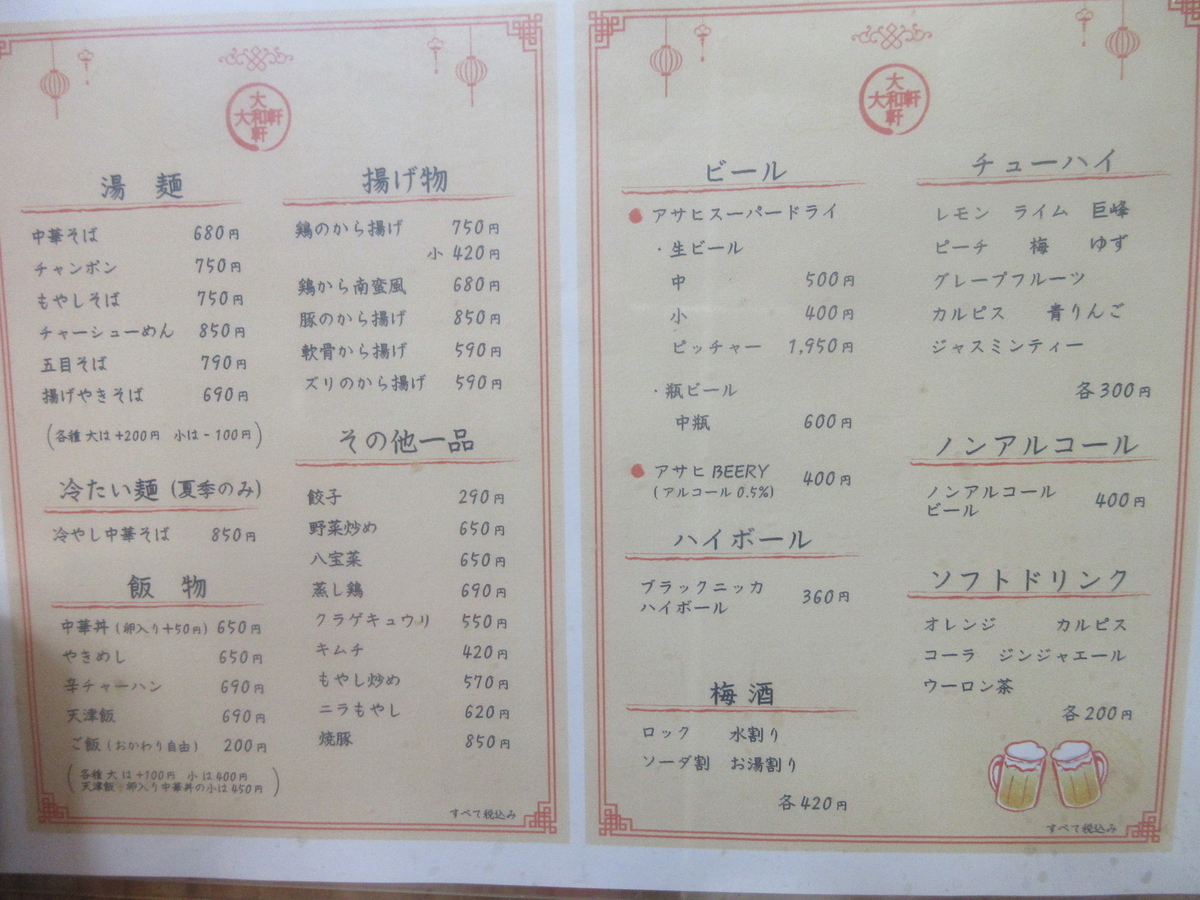 大
大和軒
軒
湯 麺
中華そば 680円
チャンポン 750円
もやしそば 750円
チャーシューめん 850円
五目そば 790円
揚げやきそば 690円
(各種 大は+200円 小は-100円)
冷たい麺 (夏季のみ)
冷やし中華そば 850円
飯 物
中華丼 (卵入り+50円) 650円
やきめし 650円
辛チャーハン 690円
天津飯 690円
ご飯 (おかわり自由) 200円
(各種 大は+100円 小は400円
天津飯・卵入り中華丼の小は450円)
揚げ物
鶏のから揚げ 750円
小 420円
鶏から南蛮風 680円
豚のから揚げ 850円
軟骨から揚げ 590円
ズリのから揚げ 590円
その他一品
餃子 290円
野菜炒め 650円
八宝菜 650円
蒸し鶏 690円
クラゲキュウリ 550円
キムチ 420円
もやし炒め 570円
ニラもやし 620円
焼豚 850円
すべて税込み
大
大和軒
軒
ビール
アサヒスーパードライ
・生ビール
中 500円
小 400円
ピッチャー 1,950円
・瓶ビール
中瓶 600円
アサヒ BEERY 400円
(アルコール 0.5%)
ハイボール
ブラックニッカ
ハイボール 360円
梅酒
ロック 水割り
ソーダ割 お湯割り
各420円
チューハイ
レモン ライム 巨峰
ピーチ 梅 ゆず
グレープフルーツ
カルピス 青りんご
ジャスミンティー
各300円
ノンアルコール
ノンアルコール
ビール 400円
ソフトドリンク
オレンジ カルピス
コーラ ジンジャエール
ウーロン茶
各200円
すべて税込み